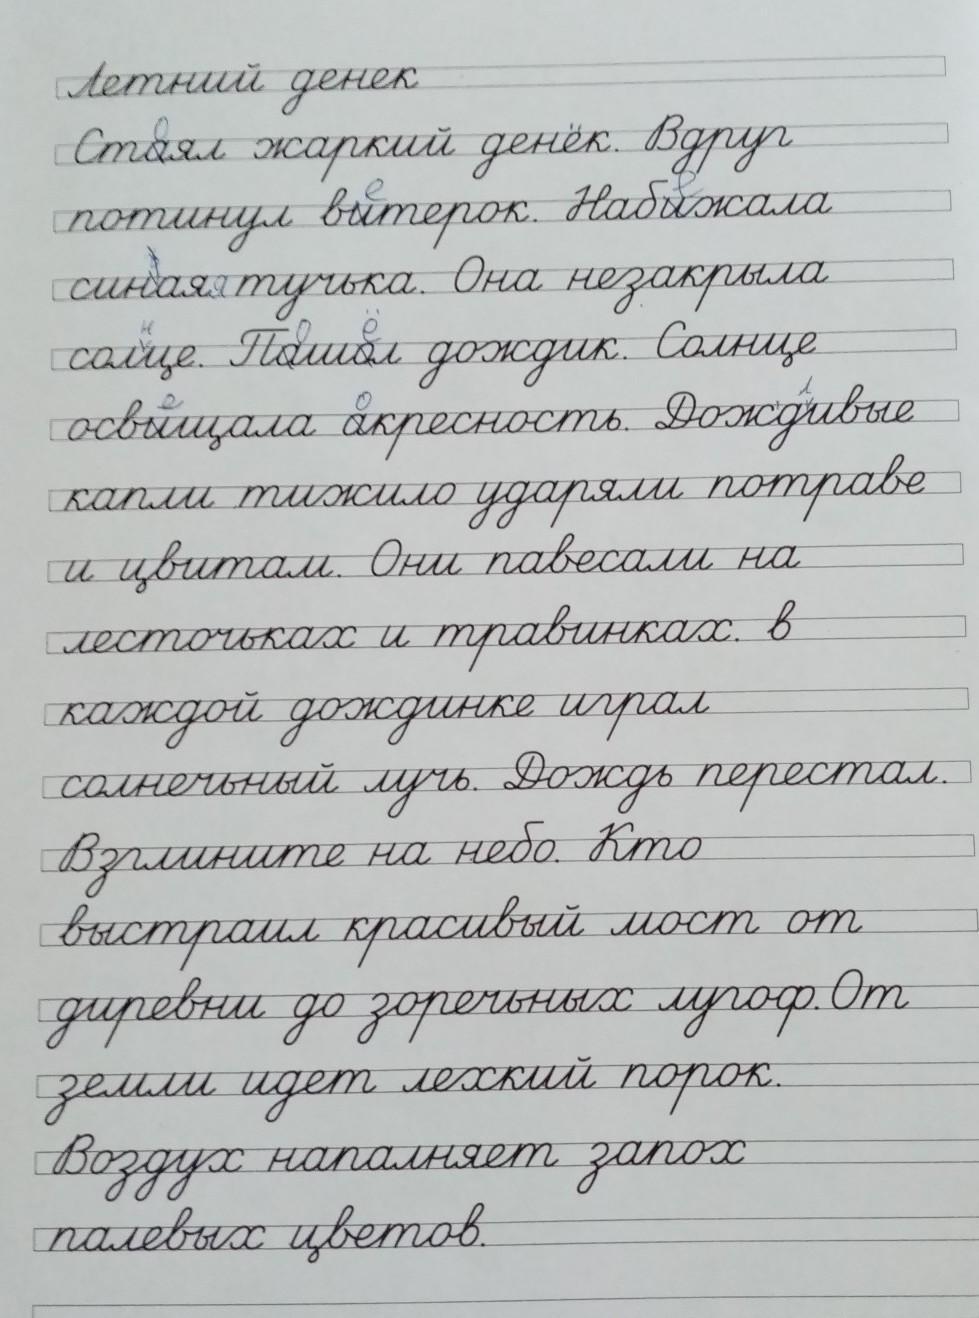 Летний денек
Стаял жаркий денёк. Вдруг
потинул витерок. Набижала
синбаяя тучька. Она незакрыла
солце. Пашол дождик. Солнце
освищала акресность. Дождивые
капли тижило ударяли потраве
и цвитам. Они павесали на
лесточьках и травинках. в
каждой дождинке играл
солнечьный лучь. Дождь перестал.
Взглините на небо. Кто
выстраил красивый мост от
диревни до зоречьных лугоф. От
земли идет лехкий порок.
Воздух напалняет запох
палевых цветов.